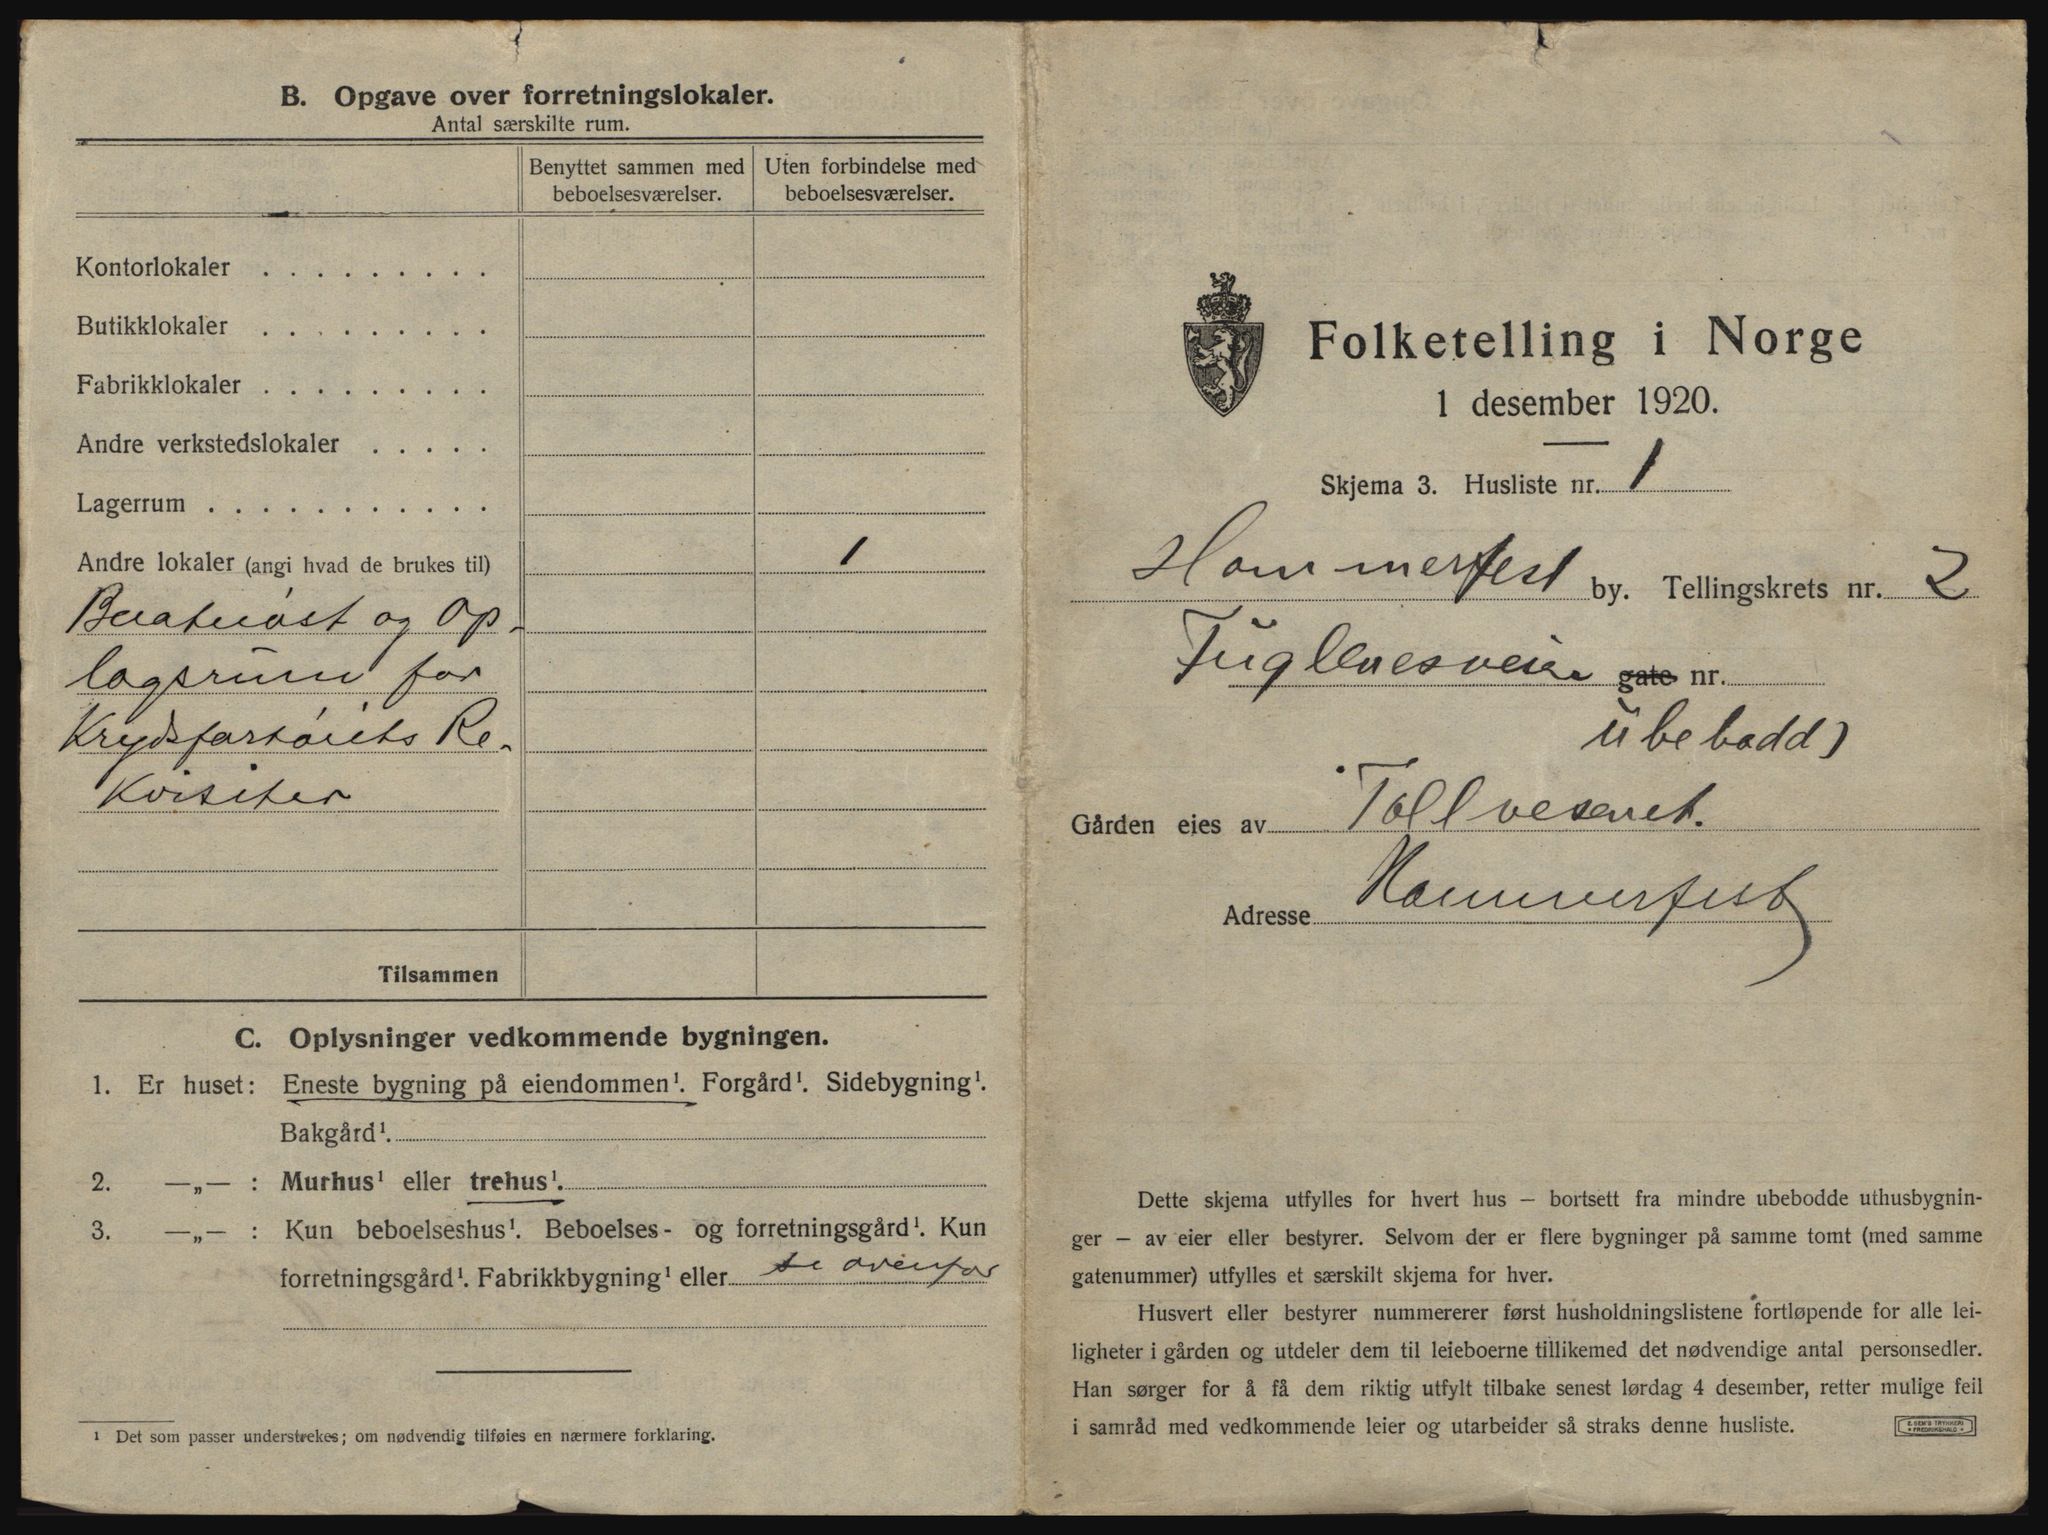 B. Opgave over forretningslokaler.
Antal særskilte rum.
Benyttet sammen med beboelsesværelser.
Uten forbindelse med beboelsesværelser.
Kontorlokaler . . . . . . . . .
Butikklokaler . . . . . . . . .
Fabrikklokaler . . . . . . . . .
Andre verkstedslokaler . . . . .
Lagerrum . . . . . . . . . . .
Andre lokaler (angi hvad de brukes til) 1
og Op-
lagsrum for
Krydsfartøiets Re-
kvisiter
Tilsammen
C. Oplysninger vedkommende bygningen.
1. Er huset: Eneste bygning på eiendommen¹. Forgård¹. Sidebygning¹.
Bakgård¹.
2. —„— : Murhus¹ eller trehus¹.
3. —„— : Kun beboelseshus¹. Beboelses- og forretningsgård¹. Kun
forretningsgård¹. Fabrikkbygning¹ eller se ovenfor
¹ Det som passer understrekes; om nødvendig tilføies en nærmere forklaring.
Folketelling i Norge
1 desember 1920.
Skjema 3. Husliste nr. 1
Hammerfest by. Tellingskrets nr. 2
Fuglenesveien gate nr.
ubebodd)
Gården eies av Tollvesenet.
Adresse Hammerfest
Dette skjema utfylles for hvert hus – bortsett fra mindre ubebodde uthusbygnin-
ger – av eier eller bestyrer. Selvom der er flere bygninger på samme tomt (med samme
gatenummer) utfylles et særskilt skjema for hver.
Husvert eller bestyrer nummererer først husholdningslistene fortløpende for alle lei-
ligheter i gården og utdeler dem til leieboerne tillikemed det nødvendige antal personsedler.
Han sørger for å få dem riktig utfylt tilbake senest lørdag 4 desember, retter mulige feil
i samråd med vedkommende leier og utarbeider så straks denne husliste.
E. SEM'S TRYKKERI
FREDRIKSHALD